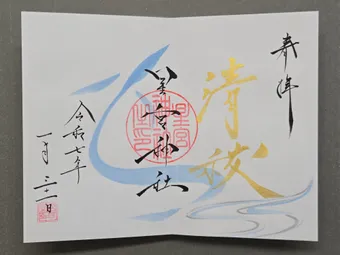 奉拝
清祓
星宮神社
令和七年
一月三十一日